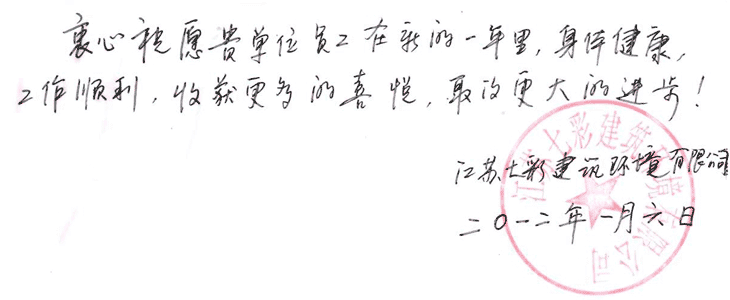 衷心祝愿贵单位员工在新的一年里,身体健康,
工作顺利,收获更多的喜悦,取得更大的进步!
江苏七彩建筑环境有限公司
二〇一二年一月六日
江苏七彩建筑环境有限公司